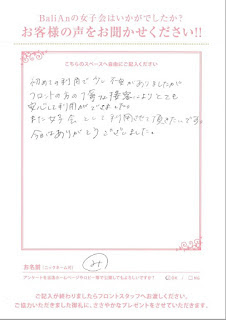 BaliAnの女子会はいかがでしたか?
お客様の声をお聞かせください!!
こちらのスペースへ自由にご記入ください
初めての利用で少し不安がありましたが
フロントの方の丁寧な接客によりとても
安心して利用ができました。
また女子会として利用させて頂きたいです。
今日はありがとうございました。
お名前(ニックネーム可)
みち
アンケートを店舗ホームページやロビー等で公開してもよろしいですか?
OK / NG
ご記入が終わりましたらフロントスタッフへお渡しください。
ご協力いただきました御礼に、ささやかなプレゼントをさせていただきます。